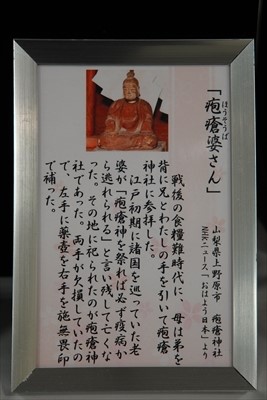 ほうそうば
「疱瘡婆さん」
山梨県上野原市 疱瘡神社
NHKニュース「おはよう日本」より
戦後の食糧難時代に、母は弟を
背に兄とわたしの手を引いて疱瘡
神社に参拝した。
江戸初期に諸国を巡っていた老
婆が「疱瘡神を祭れば必ず疫病か
ら逃れられる」と言い残して亡くな
った。その地に祀られたのが疱瘡神
社であった。両手が欠損していたの
で、左手に薬壺を右手を施無畏印
で補った。